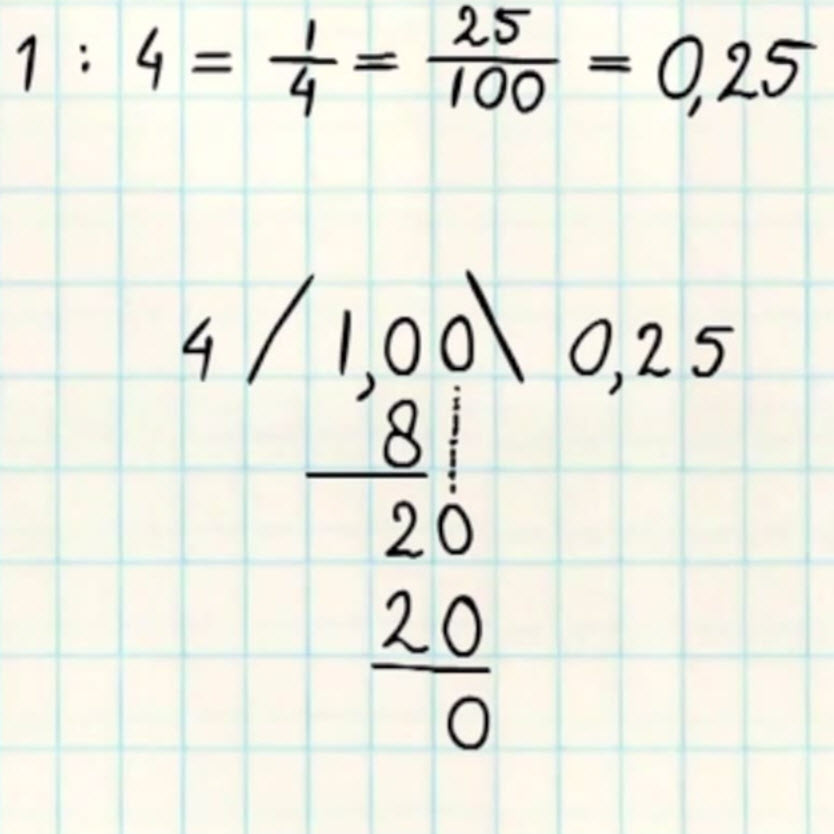 1 : 4 = 1/4 = 25/100 = 0,25
4 / 1,00 \ 0,25
8
20
20
0